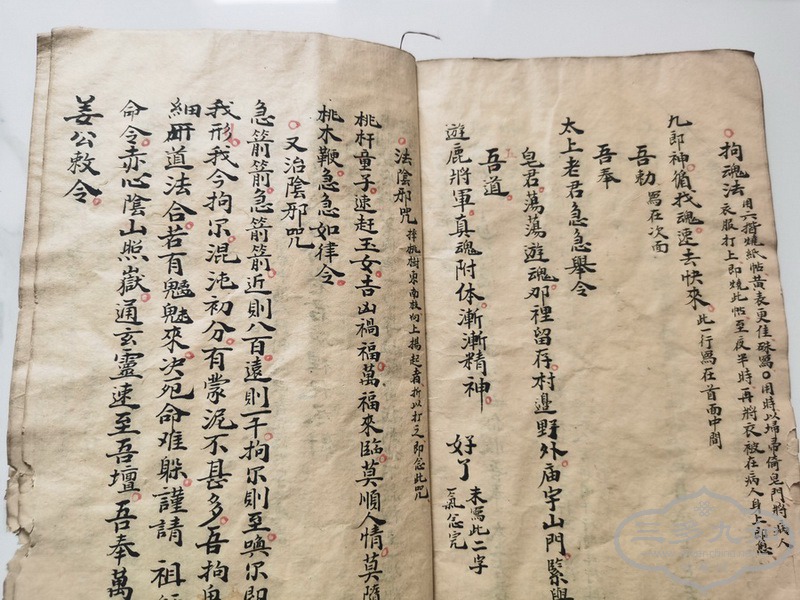 拘魂法
用六摺燒紙帖黃表更佳硃寫〇用時以埽帚倚皂門將病人
衣服打上即燒此帖至夜半時再將衣被在病人身上即愈
九郎神循找魂速去快來 此一行寫在首面中間
吾勅 寫在次面
吾奉
太上老君急急舉令
皂君蕩蕩遊魂那裡留存村邊野外庙宇山門緊與
吾道
遊鹿將軍真魂附体漸漸精神 好了
末寫此二字
一氣念完
法陰邪咒 擇桃樹東南枝向上揚起者折以打之即念此咒
桃杆童子速赶玉女吉山禍福萬福來臨莫順人情莫隨
桃木鞭急急如律令
又治陰邪咒
急箭箭急箭箭近則八百遠則一千拘尔則至喚尔即
我形我今拘尔混沌初分有蒙泥不甚多吾拘鬼
細研道法合若有魑魅來決死命难躲謹請 祖
命令赤心陰山照嶽通玄靈速至吾壇吾奉萬
姜公敕令